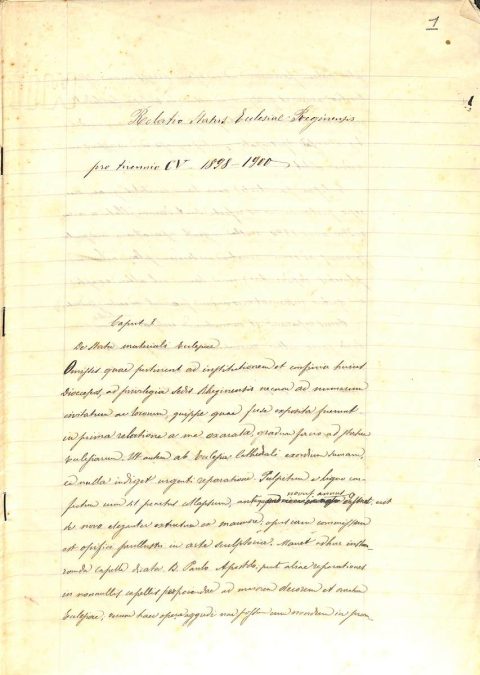 1
Relatio Status Ecclesiae Reginensis
pro triennio CV 1898-1900
Caput I
De Statu materiali Ecclesiae
Omissis quae pertinent ad institutionem et confinia huius
Dioceseos, ad privilegia Sedis Rheginensis necnon ad numerum
civitatum ac locorum, quippe quae fuse exposita fuerunt
in prima relatione a me exarata, gradum facio ad statum
Ecclesiarum. Ut autem ab Ecclesia Cathedrali exordium sumam,
ea nulla indiget urgenti reparatione. Pulpitum e ligno con-
fectum cum sit penitus collapsum, novus annus
de novo eleganter extructum ex marmore, opus cum commissum
est opifici in arte sculptoria. Manet adhuc instau-
randa capella dicata B. Paulo Apostolo, aliae reparationes
in nonnullis capellis ad maiorem decorem et
Ecclesiae, haec opera aggredi